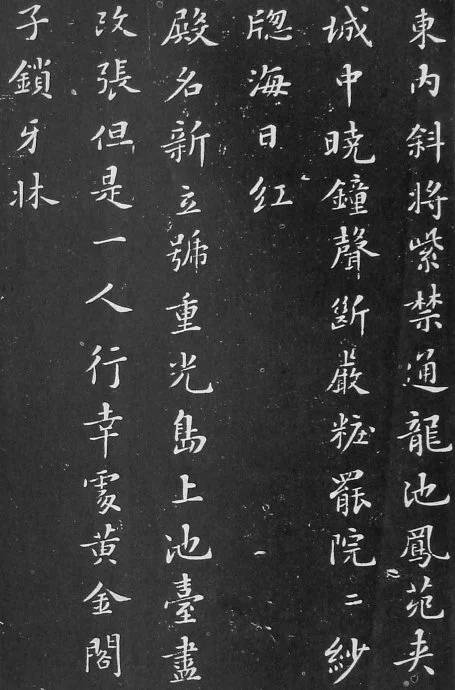 東内斜将紫禁通龍池鳳苑夹
城中曉鐘聲断嚴粧罷院〻紗
牕海日红
殿名新立號重光島上池臺盡
改張但是一人行幸處黄金閣
子鎖牙牀